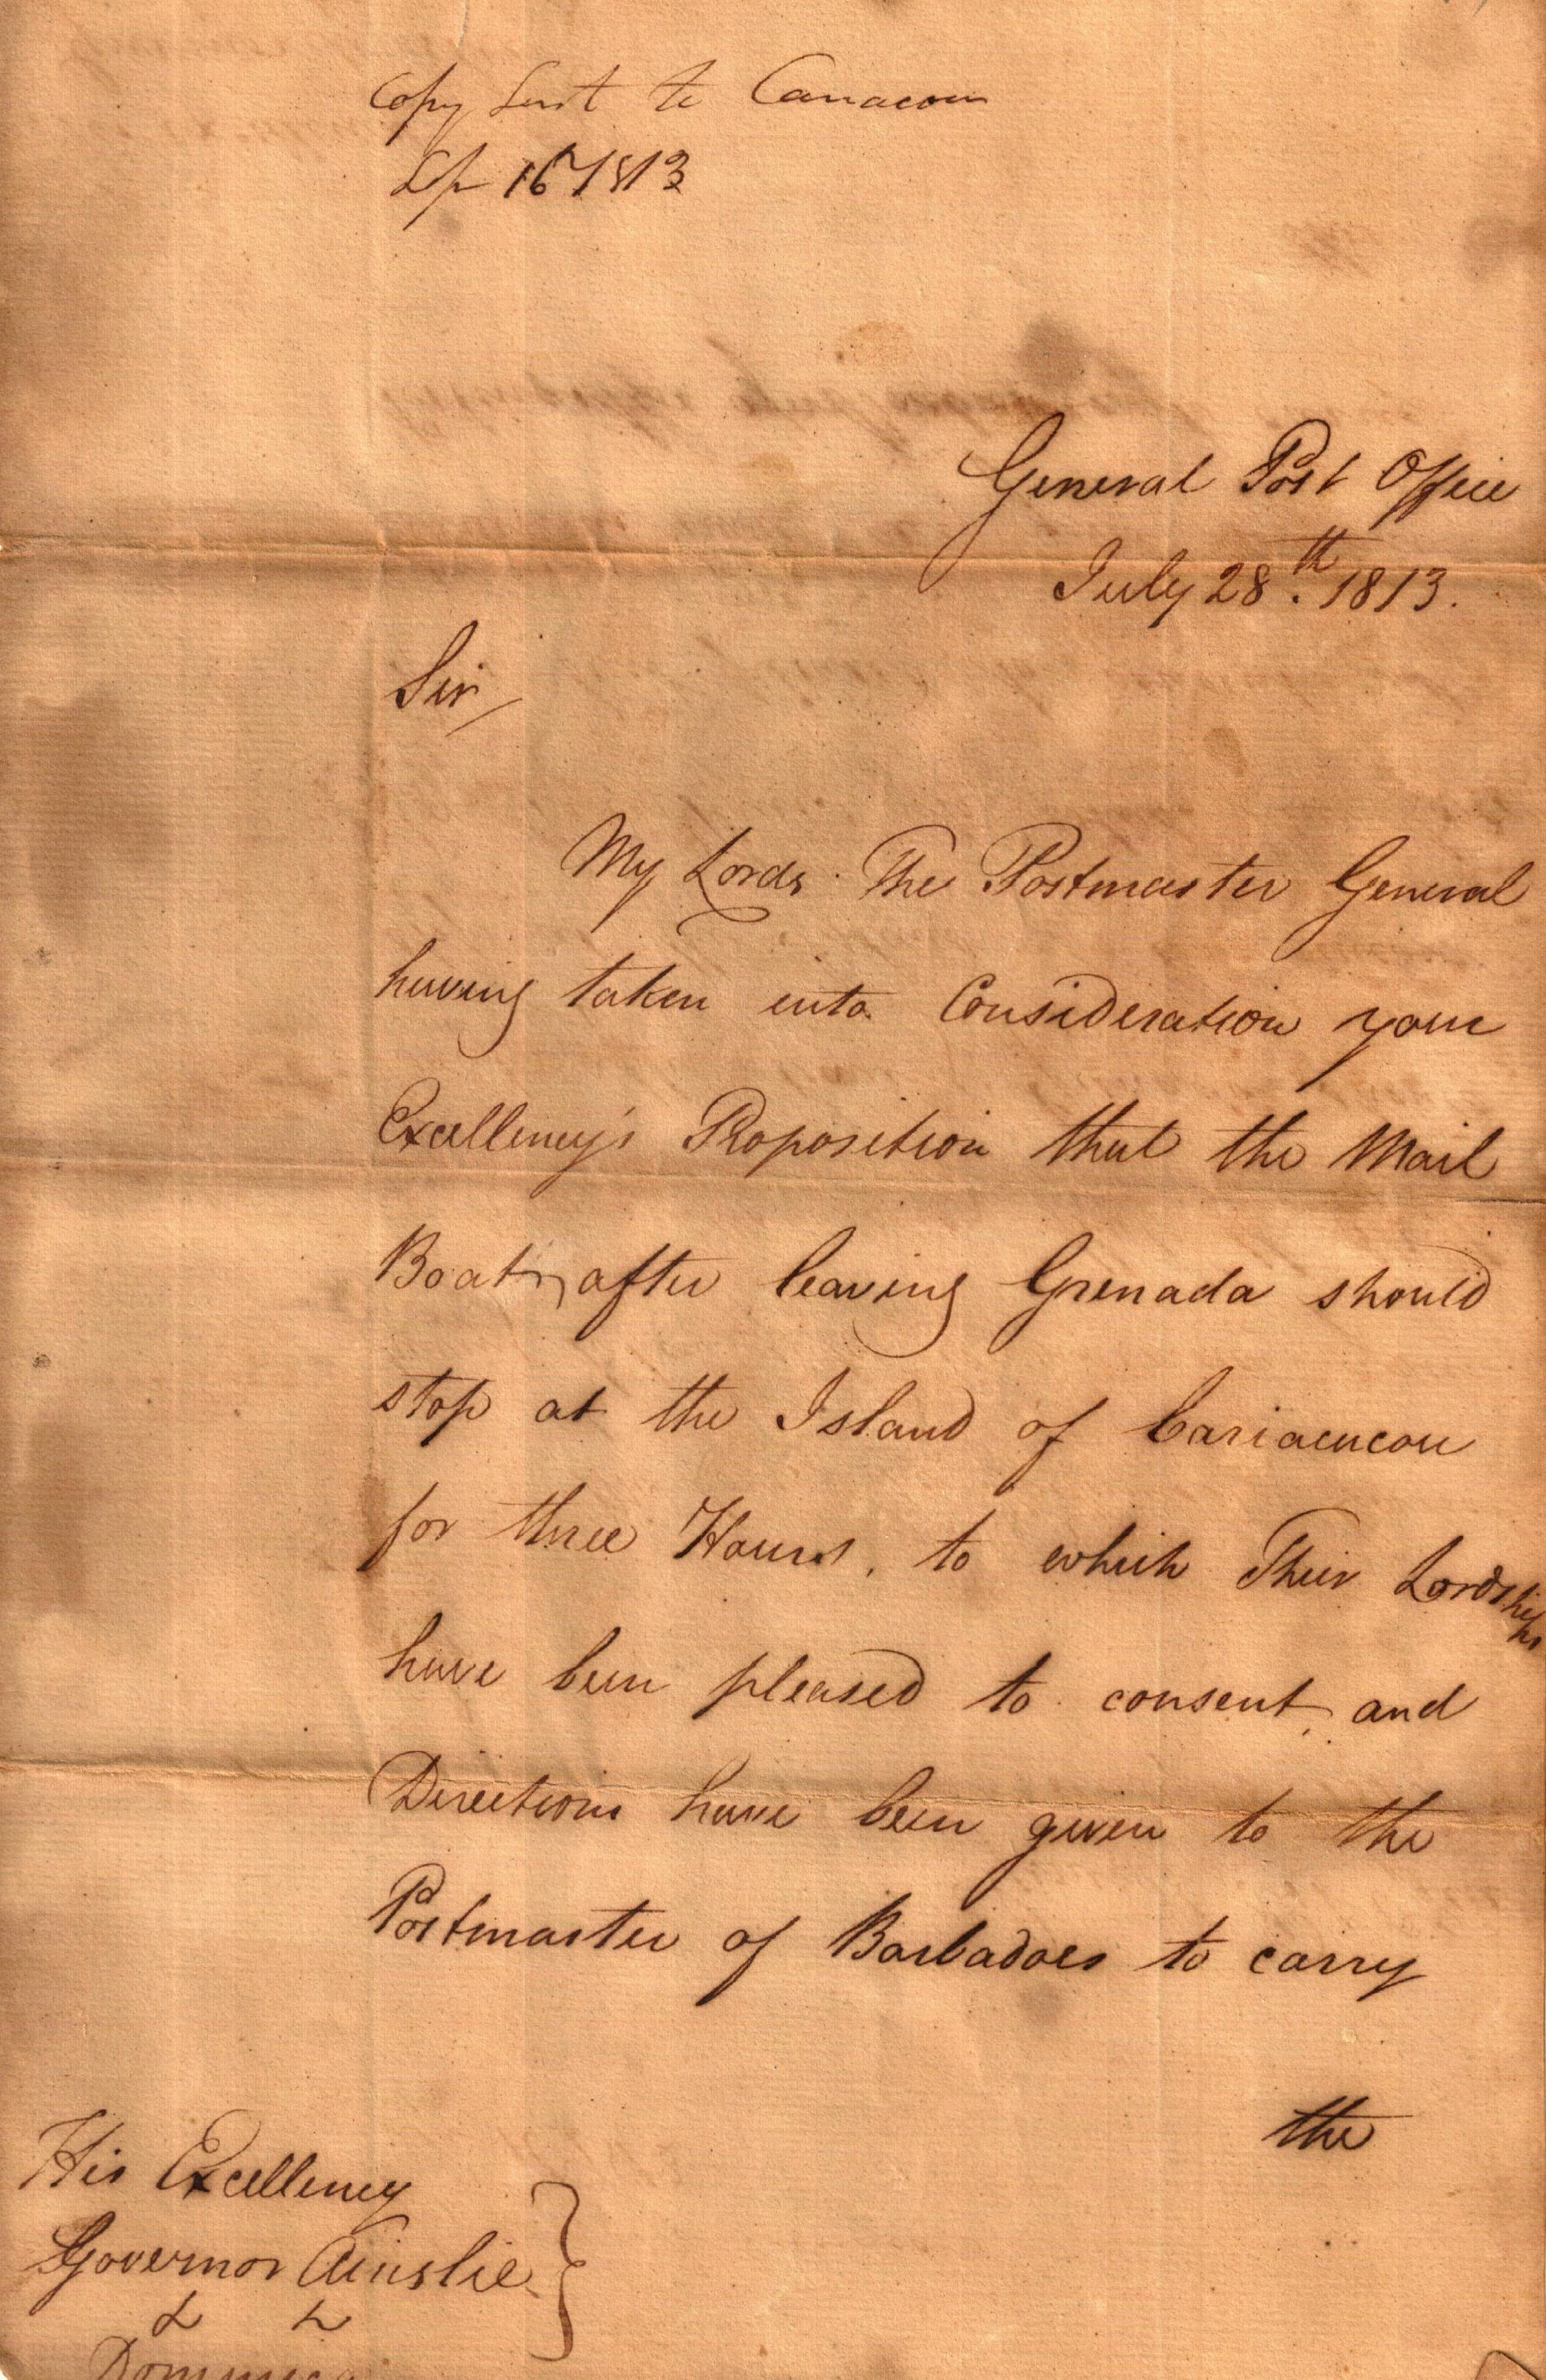 Copy Sent to Cariacou
Sep 16 1813
General Post Office
July 28th. 1813.
Sir
My Lords The Postmaster General
having taken into Consideration your
Excellency's Proposition that the Mail
Boats, after leaving Grenada should
stop at the Island of Cariacucou
for three Hours, to which Their Lordships
have been pleased to consent, and
Directions have been given to the
Postmaster of Barbadoes to carry
the
His Excellency
Governor Ainslie
&c &c
Dominica